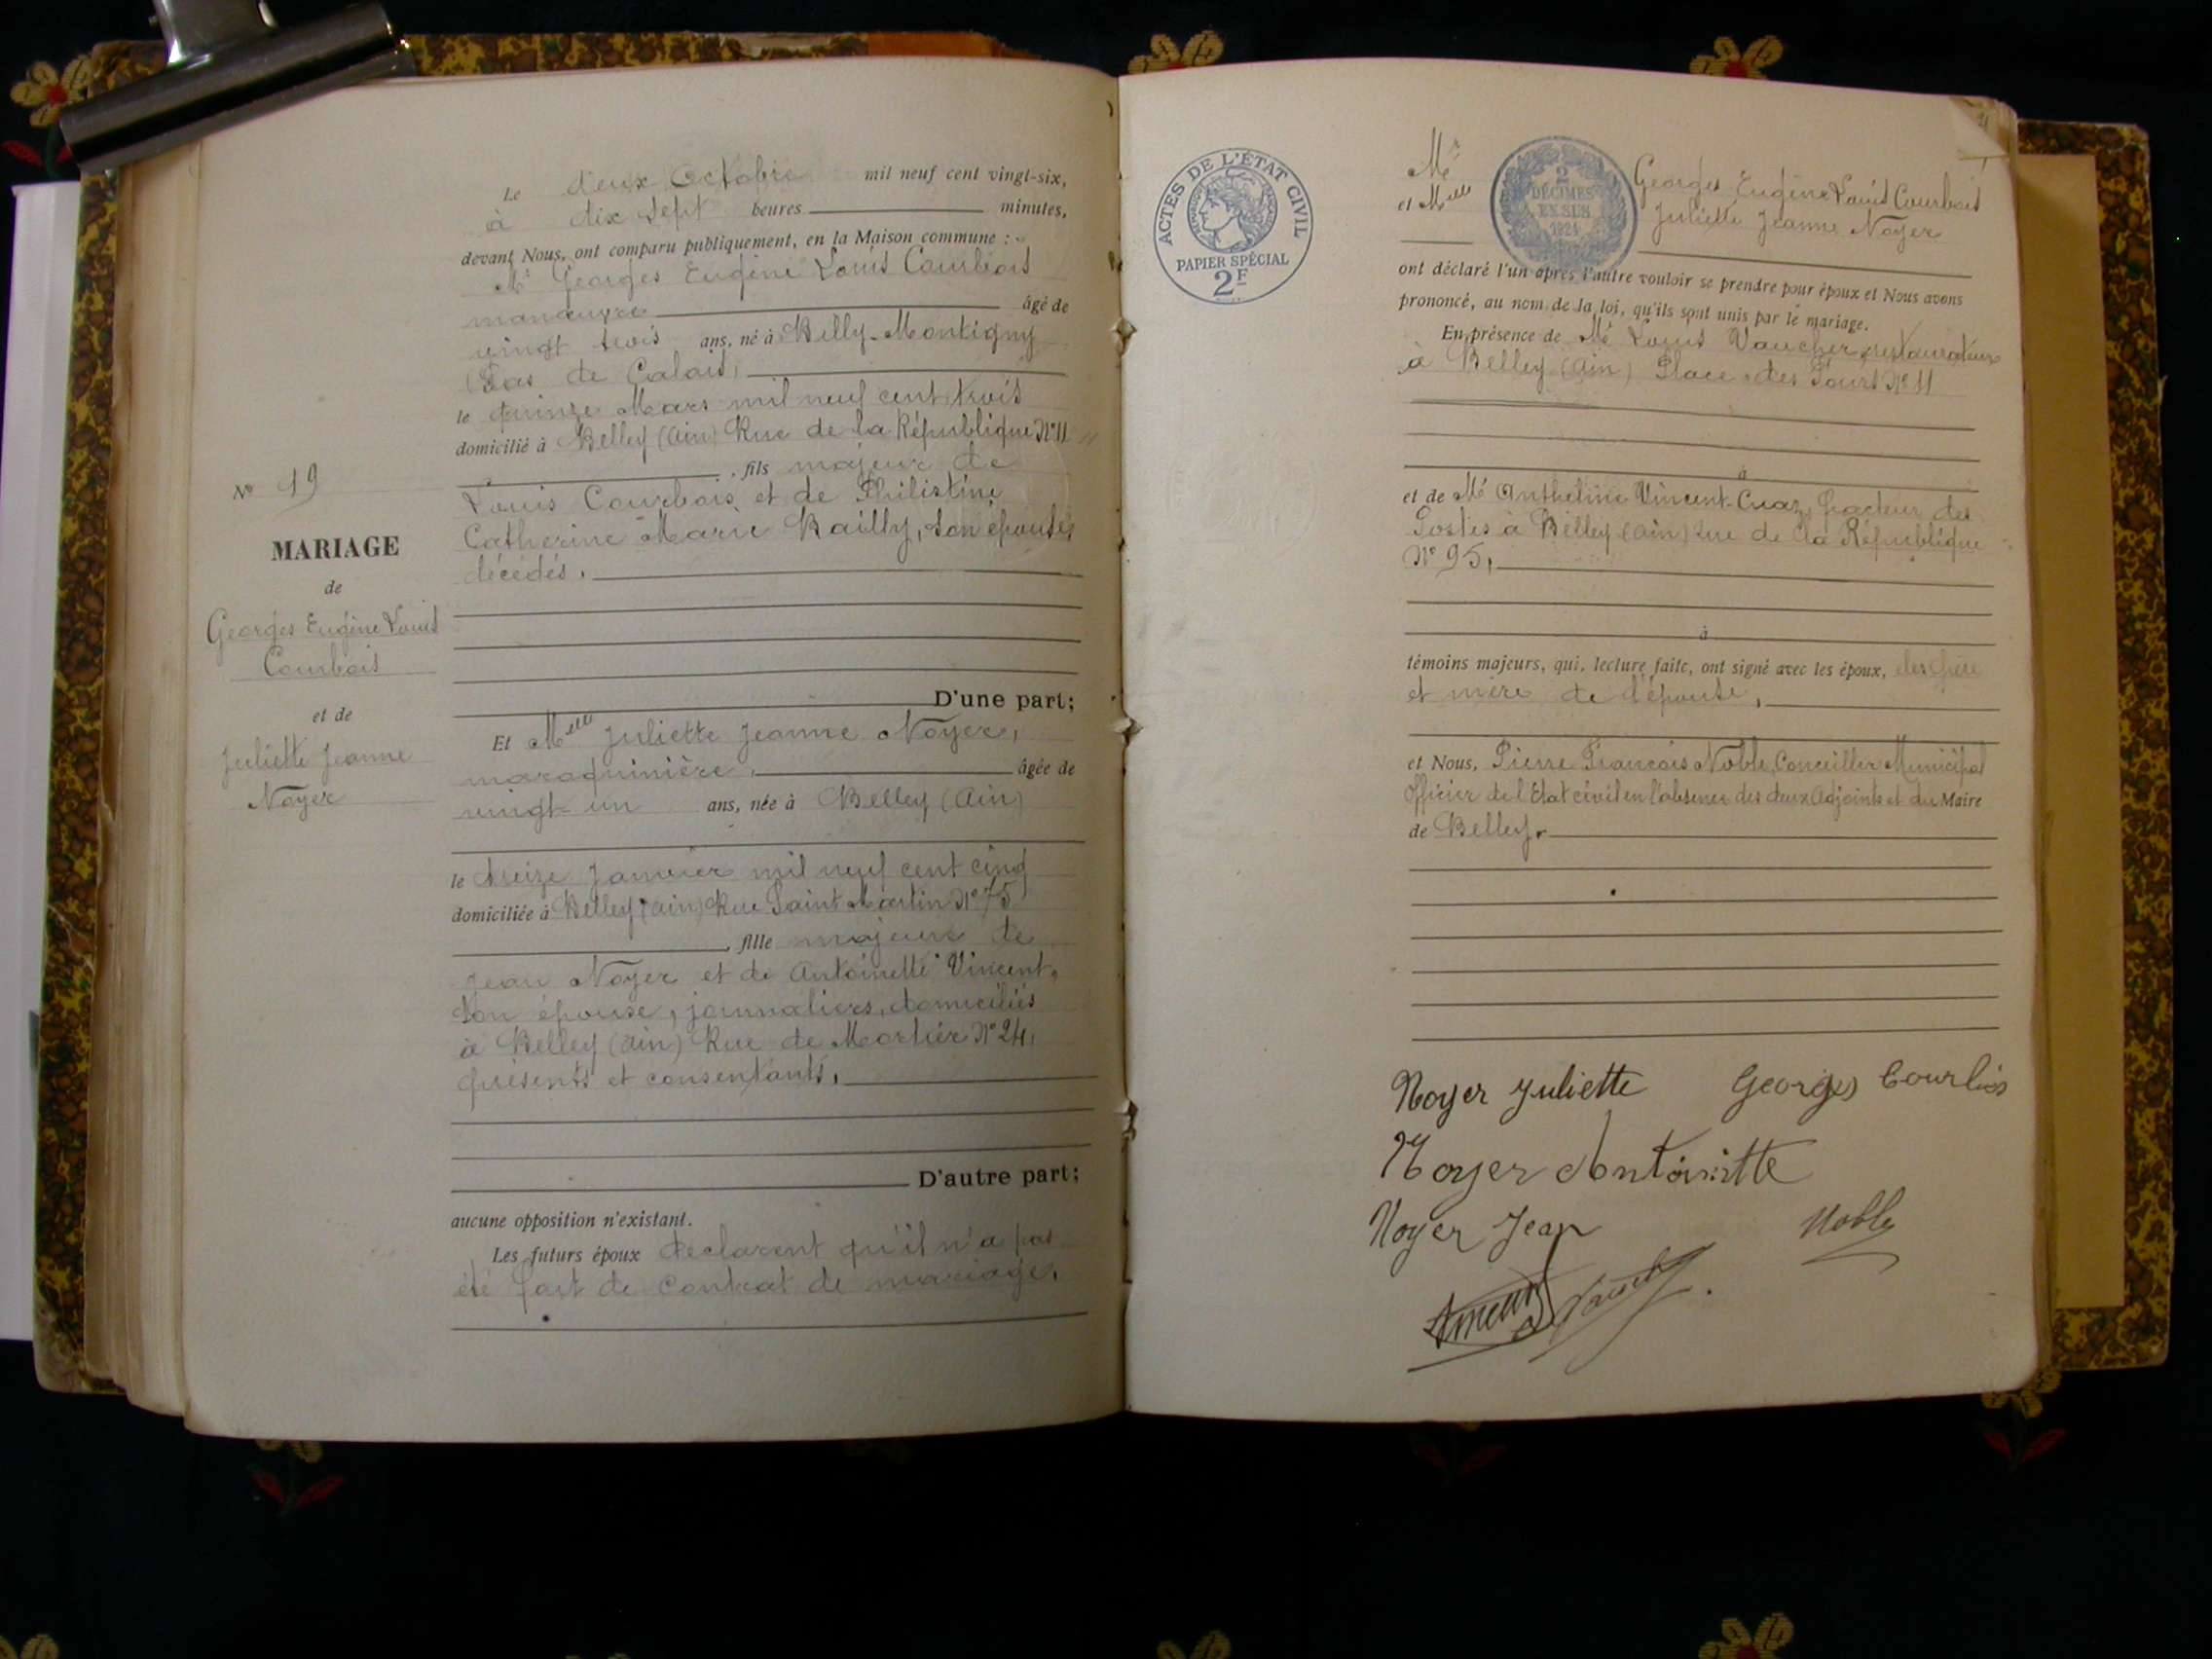 Le deux Octobre mil neuf cent vingt-six,
à dix sept heures minutes,
devant Nous, ont comparu publiquement, en la Maison commune :
Mr Georges Eugène Louis Courbois
manœuvre âgé de
vingt trois ans, né à Billy-Montigny
(Pas de Calais)
le quinze Mars mil neuf cent trois
domicilié à Belley (Ain) Rue de la République N° 11
, fils majeur de
Louis Courbois et de Philistine
Catherine Marie Bailly, son épouse,
décédés.
N° 19
MARIAGE
de
Georges Eugène Louis
Courbois
et de
Juliette Jeanne
Noyer
D'une part;
Et Melle Juliette Jeanne Noyer,
maroquinière, âgée de
vingt-un ans, née à Belley (Ain)
le treize Janvier mil neuf cent cinq
domiciliée à Belley (Ain) Rue Saint Martin N° 75
, fille majeure de
Jean Noyer et de Antoinette Vincent,
son épouse, journaliers, domiciliés
à Belley (Ain) Rue de Mortier N° 24,
présents et consentants,
D'autre part;
aucune opposition n'existant.
Les futurs époux déclarent qu'il n'a pas
été fait de contrat de mariage.
ACTES DE L'ÉTAT CIVIL
PAPIER SPÉCIAL
2F
2
DÉCIMES
EN SUS
1921
Mr Georges Eugène Louis Courbois
et Melle Juliette Jeanne Noyer
ont déclaré l'un après l'autre vouloir se prendre pour époux et Nous avons
prononcé, au nom de la loi, qu'ils sont unis par le mariage.
En présence de Mr Louis Vaucher, restaurateur
à Belley (Ain) Place des Tours N° 11
à
et de Mr Anthelme Vincent-Cuaz, facteur des
Postes à Belley (Ain) rue de la République
N° 95,
à
témoins majeurs, qui, lecture faite, ont signé avec les époux, les père
et mère de l'épouse,
et Nous, Pierre François Noble, Conseiller Municipal
Officier de l'Etat civil en l'absence des deux Adjoints et du Maire
de Belley.
Noyer Juliette Georges Courbois
Noyer Antoinette
Noyer Jean Noble